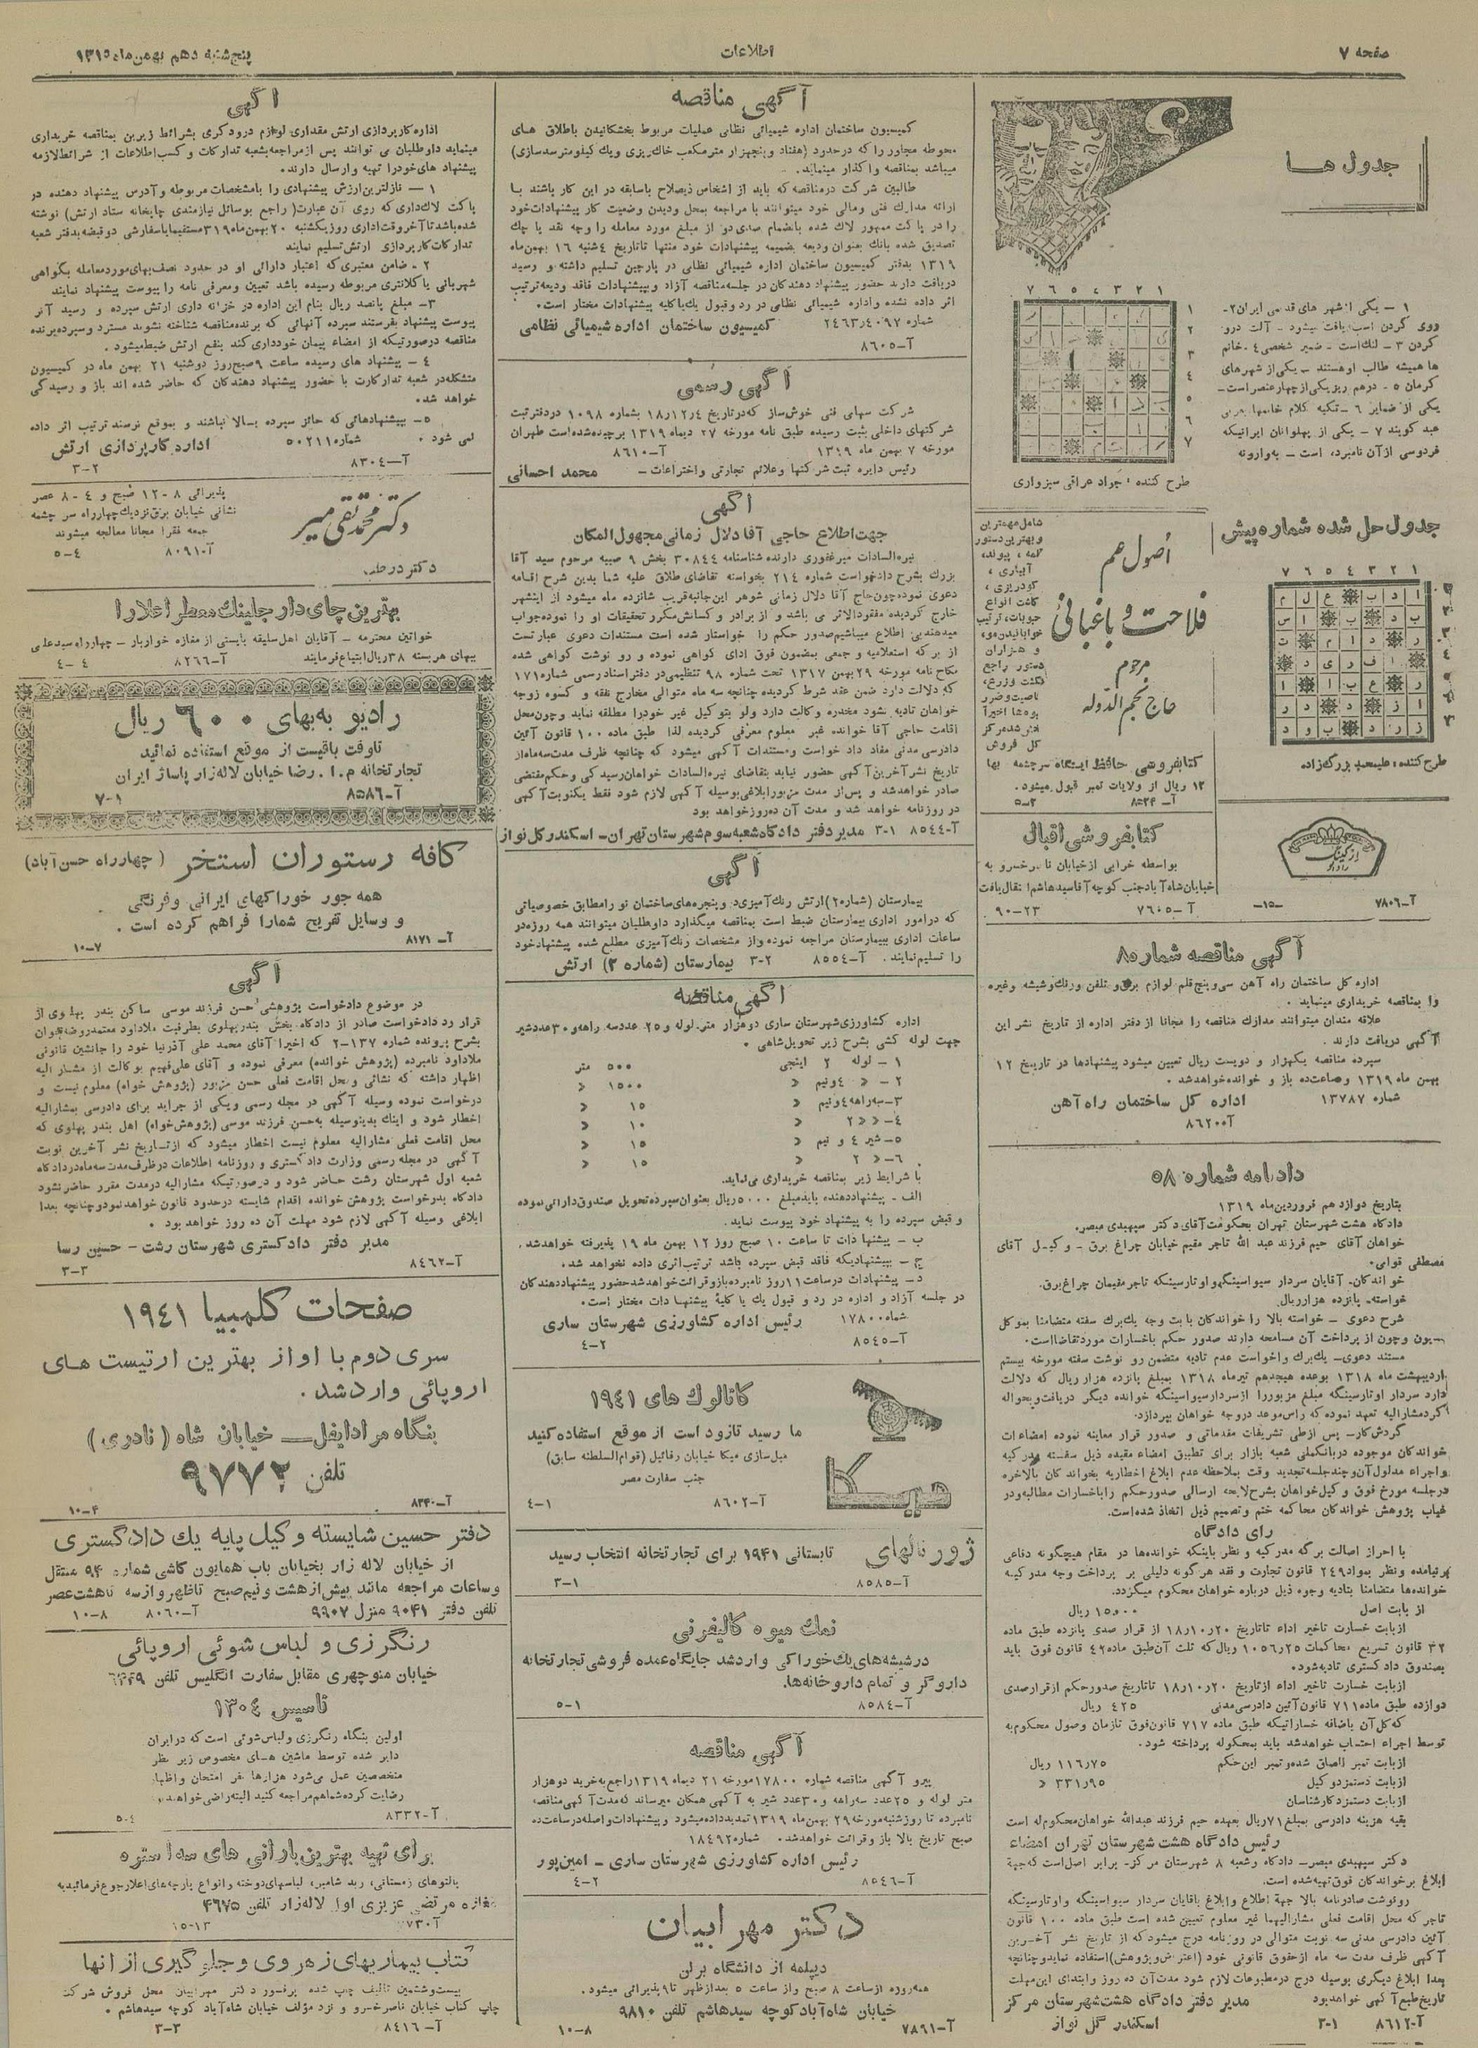 صفحه ۷
اطلاعات
پنج‌شنبه دهم بهمن‌ماه ۱۳۱۹
جدول ها
۱ ۲ ۳ ۴ ۵ ۶ ۷
۱ – یکی از شهر های قدیمی ایران ۲-
کردن ۳ – لنگ است – ضمیر شخصی ۴. خانم
ها همیشه طالب او هستند – یکی از شهرهای
کرمان ۵ – درهم ریز یکی از چهار عنصر است –
عید گویند ۷ – یکی از پهلوانان ایران که
فردوسی از آن نامبرده است – به وارونه
طرح کننده : جواد عراقی سبزواری
جدول حل شده شماره پیش
طرح کننده :
اصول علم
فلاحت و باغبانی
مرحوم
حاج نجم الدوله
شامل مهمترین
و بهترین دستور
کتابفروشی حافظ ایستگاه سرچشمه بها
۱۲ ریال از ولایات تمبر قبول میشود.
آ–۸۵۲۴ ۲–۵
کتابفروشی اقبال
بواسطه خرابی از خیابان ناصرخسرو به
خیابان شاه آباد جنب کوچه آقا سید هاشم انتقال یافت
آ–۷۶۰۵ ۲۳–۹۰
آ–۷۸۰۶ –۱۵–
آگهی مناقصه شماره ۸۰
اداره کل ساختمان راه آهن سی و پنج قلم لوازم برق و تلفن و رنگ و شیشه و غیره
را بمناقصه خریداری مینماید .
علاقه مندان میتوانند مدارک مناقصه را مجاناً از دفتر اداره از تاریخ نشر این
آگهی دریافت دارند .
سپرده مناقصه یکهزار و دویست ریال تعیین میشود پیشنهادها در تاریخ ۱۲
بهمن ماه ۱۳۱۹ و ساعت ده باز و خوانده خواهد شد .
شماره ۱۳۷۸۷ اداره کل ساختمان راه آهن
آ–۸۶۲۰
دادنامه شماره ۵۸
بتاریخ دوازدهم فروردین ماه ۱۳۱۹
دادگاه هشت شهرستان تهران بحکومت آقای دکتر سپهبدی مبصر.
خواهان آقای حیم فرزند عبد الله تاجر مقیم خیابان چراغ برق – وکیل آقای
مصطفی قوامی.
خواندگان– آقایان سردار سیواسینگه و اوتارسینگه تاجر مقیمان چراغ برق.
خواسته– پانزده هزار ریال.
شرح دعوی – خواسته بالا را خواندگان بابت وجه یک برگ سفته متضامنا بموکل
مدیون و چون از پرداخت آن مسامحه دارند صدور حکم با خسارات مورد تقاضا است.
مستند دعوی– یک برگ واخواست عدم تادیه متضمن رو نوشت سفته مورخه بیستم
اردیبهشت ماه ۱۳۱۸ بوعده هیجدهم تیرماه ۱۳۱۸ بمبلغ پانزده هزار ریال که دلالت
دارد سردار اوتارسینگه مبلغ مزبور را از سردار سیواسینگه خوانده دیگر دریافت و بحواله
کرد مشارالیه تعهد نموده که راس موعد در وجه خواهان بپردازد.
گردش کار– پس از طی تشریفات مقدماتی و صدور قرار معاینه نموده امضاءات
خواندگان موجوده در بانک ملی شعبه بازار برای تطبیق امضاء مقیده ذیل سفته مدرکیه
و اجراء مدلول آن و چند جلسه تجدید وقت بملاحظه عدم ابلاغ اخطاریه بخواندگان بالاخره
در جلسه مورخ فوق وکیل خواهان بشرح لایحه ارسالی صدور حکم را با خسارات مطالبه و در
غیاب پژوهش خواندگان محاکمه ختم و تصمیم ذیل اتخاذ شده است.
رای دادگاه
با احراز اصالت برگه مدرکیه و نظر باینکه خوانده‌ها در مقام هیچگونه دفاعی
برنیامده و نظر بمواد ۲۴۹ قانون تجارت و فقد هر گونه دلیلی بر پرداخت وجه مدرکیه
خوانده‌ها متضامنا بتادیه وجوه ذیل درباره خواهان محکوم میگردد.
از بابت اصل ۱۵٫۰۰۰ ریال
از بابت خسارت تاخیر اداء تا تاریخ ۱۸٫۱۰٫۲۰ از قرار صدی پانزده طبق ماده
۳۲ قانون تسریع محاکمات ۱۰۵۶٫۲۵ ریال که ثلث آن طبق ماده ۴۲ قانون فوق باید
بصندوق دادگستری تادیه شود.
از بابت خسارت تاخیر اداء از تاریخ ۱۸٫۱۰٫۲۰ تا تاریخ صدور حکم از قرار صدی
دوازده طبق ماده ۷۱۱ قانون آئین دادرسی مدنی ۴۲۵ ریال
که کل آن باضافه خساراتیکه طبق ماده ۷۱۷ قانون فوق تا زمان وصول محکوم به
توسط اجراء احتساب خواهد شد باید بمحکوم‌له پرداخته شود.
از بابت تمبر الصاق شده و تمبر این حکم ۱۱۶٫۷۵ ریال
از بابت دستمزد وکیل ۳۳۱٫۹۵ «
از بابت دستمزد کارشناسان
بقیه هزینه دادرسی بمبلغ ۷۱ ریال بعهده حیم فرزند عبدالله خواهان محکوم‌له است
رئیس دادگاه هشت شهرستان تهران امضاء
دکتر سپهبدی مبصر– دادگاه و شعبه ۸ شهرستان مرکز– برابر اصل است که جهة
ابلاغ بر خواندگان فوق تهیه شده است.
رونوشت دادنامه بالا جهة اطلاع و ابلاغ بآقایان سردار سیواسینگه و اوتارسینگه
تاجر که محل اقامت فعلی مشارالیهما غیر معلوم تعیین شده است طبق ماده ۱۰۰ قانون
آئین دادرسی مدنی سه نوبت متوالی در روزنامه درج میشود که از تاریخ نشر آخرین
آگهی ظرف مدت سه ماه از حقوق قانونی خود (اعتراض و پژوهش) استفاده نماید و چنانچه
بعدا ابلاغ دیگری بوسیله درج در مطبوعات لازم شود مدت آن ده روز و ابتدای این مهلت
تاریخ طبع آگهی خواهد بود مدیر دفتر دادگاه هشت شهرستان مرکز
آ–۸۶۱۲ ۱–۳ اسکندر گل نواز
آگهی مناقصه
کمیسیون ساختمان اداره شیمیائی نظامی عملیات مربوط بخشکانیدن باطلاق های
محوطه مجاور را که در حدود (هفتاد و پنجهزار متر مکعب خاک ریزی و یک کیلومتر سد سازی)
میباشد بمناقصه واگذار مینماید.
طالبین شرکت در مناقصه که باید از اشخاص ذیصلاح با سابقه در این کار باشند با
ارائه مدارک فنی و مالی خود میتوانند با مراجعه بمحل و دیدن وضعیت کار پیشنهادات خود
را در پاکت ممهور لاک شده بانضمام صدی دو از مبلغ مورد معامله را وجه نقد یا چک
تصدیق شده بانک بعنوان ودیعه بضمیمه پیشنهادات خود منتها تا تاریخ ۴ شنبه ۱۶ بهمن ماه
۱۳۱۹ بدفتر کمیسیون ساختمان اداره شیمیائی نظامی در پارچین تسلیم داشته و رسید
دریافت دارند حضور پیشنهاد دهندگان در جلسه مناقصه آزاد و پیشنهادات فاقد ودیعه ترتیب
اثر داده نشده و اداره شیمیائی نظامی در رد و قبول یک یا کلیه پیشنهادات مختار است.
شماره ۲۴۶۳٫۴۰۹۷ کمیسیون ساختمان اداره شیمیائی نظامی
آ–۸۶۰۵
آگهی رسمی
شرکت سهامی فنی خوش‌ساز که در تاریخ ۱۸٫۱۲٫۴ بشماره ۱۰۹۸ در دفتر ثبت
شرکتهای داخلی بثبت رسیده طبق نامه مورخه ۲۷ دیماه ۱۳۱۹ برچیده شده است طهران
مورخه ۷ بهمن ماه ۱۳۱۹ آ–۸۶۱۰
رئیس دایره ثبت شرکتها و علائم تجارتی و اختراعات – محمد احسانی
آگهی
جهت اطلاع حاجی آقا دلال زمانی مجهول المکان
نیره‌السادات میرغفوری دارنده شناسنامه ۳۰۸۴۴ بخش ۹ صبیه مرحوم سید آقا
بزرگ بشرح دادخواست شماره ۲۱۴ بخواسته تقاضای طلاق علیه شما بدین شرح اقامه
دعوی نموده چون حاج آقا دلال زمانی شوهر این جانبه قریب شانزده ماه میشود از اینشهر
خارج گردیده مفقودالاثر می باشد و از برادر و کسانش مکرر تحقیقات او را نموده جواب
میدهند بی اطلاع میباشیم صدور حکم را خواستار شده است مستندات دعوی عبارتست
از برگه استعلامیه و جمعی بمضمون فوق ادای گواهی نموده و رو نوشت گواهی شده
نکاح نامه مورخه ۲۹ بهمن ۱۳۱۷ تحت شماره ۹۸ تنظیمی در دفتر اسناد رسمی شماره ۱۷۱
که دلالت دارد ضمن عقد شرط گردیده چنانچه سه ماه متوالی مخارج نفقه و کسوه زوجه
خواهان تادیه نشود مخدره وکالت دارد ولو بتوکیل غیر خود را مطلقه نماید و چون محل
اقامت حاجی آقا خوانده غیر معلوم معرفی گردیده لذا طبق ماده ۱۰۰ قانون آئین
دادرسی مدنی مفاد داد خواست و مستندات آگهی میشود که چنانچه ظرف مدت سه ماه از
تاریخ نشر آخرین آگهی حضور نیابد بتقاضای نیره‌السادات خواهان رسیدگی و حکم مقتضی
صادر خواهد شد و پس از مدت مزبور ابلاغی بوسیله آگهی لازم شود فقط یکنوبت آگهی
در روزنامه خواهد شد و مدت آن ده روز خواهد بود
آ–۸۵۴۴ ۱–۳ مدیر دفتر دادگاه شعبه سوم شهرستان تهران– اسکندر گل نواز
آگهی
بیمارستان (شماره ۲) ارتش رنگ آمیزی در و پنجره‌های ساختمان نو را مطابق خصوصیاتی
که در امور اداری بیمارستان ضبط است بمناقصه میگذارد داوطلبان میتوانند همه روزه در
ساعات اداری ببیمارستان مراجعه نموده و از مشخصات رنگ آمیزی مطلع شده پیشنهاد خود
را تسلیم نمایند. آ–۸۵۵۴ ۲–۳ بیمارستان (شماره ۲) ارتش
آگهی مناقصه
اداره کشاورزی شهرستان ساری دو هزار متر لوله و ۲۵ عدد سه راهه و ۳۰ عدد شیر
جهت لوله کشی بشرح زیر تحویل شاهی .
۱– لوله ۲ اینچی ۵۰۰ متر
۲– « ۴ و نیم « ۱۵۰۰ «
۳– سه راهه ۴ و نیم « ۱۵ «
۴– « « ۲ « ۱۰ «
۵– شیر ۴ و نیم « ۱۵ «
۶– « ۲ « ۱۵ «
با شرایط زیر بمناقصه خریداری می‌نماید.
الف – پیشنهاد دهنده باید مبلغ ۵۰۰۰ ریال بعنوان سپرده تحویل صندوق دارائی نموده
و قبض سپرده را به پیشنهاد خود پیوست نماید.
ب – پیشنهادات تا ساعت ۱۰ صبح روز ۱۲ بهمن ماه ۱۹ پذیرفته خواهد شد .
ج – پیشنهادیکه فاقد قبض سپرده باشد ترتیب اثری داده نخواهد شد.
د – پیشنهادات در ساعت ۱۱ روز نامبرده باز و قرائت خواهد شد حضور پیشنهاد دهندگان
در جلسه آزاد و اداره در رد و قبول یک یا کلیهٔ پیشنهادات مختار است.
شماره ۱۷۸۰۰ رئیس اداره کشاورزی شهرستان ساری
آ–۸۵۴۵ ۲–۴
کاتالوک های ۱۹۴۱
ما رسید تا زود است از موقع استفاده کنید
مبل سازی میکا خیابان رفائیل (قوام السلطنه سابق)
جنب سفارت مصر
آ–۸۶۰۲ ۱–۴
میکا
ژورنالهای تابستانی ۱۹۴۱ برای تجارتخانه انتخاب رسید
آ–۸۵۸۵ ۱–۳
نمک میوه کالیفرنی
در شیشه‌های یک خوراکی وارد شد جایگاه عمده فروشی تجارتخانه
داروگر و تمام داروخانه‌ها.
آ–۸۵۸۴ ۱–۵
آگهی مناقصه
پیرو آگهی مناقصه شماره ۱۷۸۰۰ مورخه ۲۱ دیماه ۱۳۱۹ راجع به خرید دو هزار
متر لوله و ۲۵ عدد سه‌راهه و ۳۰ عدد شیر به آگهی همگان میرساند که مدت آگهی مناقصه
نامبرده تا روز شنبه مورخه ۲۹ بهمن ماه ۱۳۱۹ تمدید داده میشود و پیشنهادات واصله در ساعت ده
صبح تاریخ بالا باز و قرائت خواهد شد. شماره ۱۸۴۹۲
رئیس اداره کشاورزی شهرستان ساری – امین‌پور
آ–۸۵۴۶ ۲–۴
دکتر مهرابیان
دیپلمه از دانشگاه برلن
همه‌روزه از ساعت ۸ صبح و از ساعت ۵ بعد از ظهر تا ۹ پذیرائی میشود.
خیابان شاه‌آباد کوچه سید هاشم تلفن ۹۸۱۰
آ–۷۸۹۱ ۸–۱۰
آگهی
اداره کارپردازی ارتش مقداری لوازم درودگری بشرائط زیرین بمناقصه خریداری
مینماید داوطلبان می توانند پس از مراجعه بشعبه تدارکات و کسب اطلاعات از شرائط لازمه
پیشنهاد های خود را تهیه و ارسال دارند.
۱ – نازلترین ارزش پیشنهادی را با مشخصات مربوطه و آدرس پیشنهاد دهنده در
پاکت لاک داری که روی آن عبارت (راجع بوسائل نیازمندی چاپخانه ستاد ارتش) نوشته
شده باشد تا آخر وقت اداری روز یکشنبه ۲۰ بهمن ماه ۳۱۹ مستقیما یا سفارشی دو قبضه بدفتر شعبه
تدارکات کارپردازی ارتش تسلیم نمایند
۲ – ضامن معتبری که اعتبار دارائی او در حدود نصف بهای مورد معامله بگواهی
شهربانی یا کلانتری مربوطه رسیده باشد تعیین و معرفی نامه را پیوست پیشنهاد نمایند
۳– مبلغ پانصد ریال بنام این اداره در خزانه داری ارتش سپرده و رسید آنرا
پیوست پیشنهاد بفرستند سپرده آنهائی که برنده مناقصه شناخته نشوند مسترد و سپرده برنده
مناقصه در صورتیکه از امضاء پیمان خودداری کند بنفع ارتش ضبط میشود.
۴ – پیشنهاد های رسیده ساعت ۹ صبح روز دوشنبه ۲۱ بهمن ماه در کمیسیون
متشکله در شعبه تدارکات با حضور پیشنهاد دهندگان که حاضر شده اند باز و رسیدگی
خواهد شد.
۵– پیشنهادهائی که حائز سپرده بالا نباشند و بموقع نرسند ترتیب اثر داده
نمی شود . شماره ۵۰۲۱۱ اداره کارپردازی ارتش
آ–۸۳۰۴ ۲–۳
دکتر محمد تقی میر
پذیرائی ۸–۱۲ صبح و ۴–۸ عصر
نشانی خیابان برق نزدیک چهارراه سر چشمه
جمعه فقرا مجاناً معالجه میشوند
آ–۸۰۹۱ ۴–۵
بهترین چای دارجلینک معطر اعلا را
خواتین محترمه – آقایان اهل سلیقه بایستی از مغازه خواربار – چهارراه سید علی
ببهای هر بسته ۳۸ ریال ابتیاع فرمایند آ–۸۲۶۶ ۴–۴
رادیو به بهای ۶۰۰ ریال
تا وقت باقیست از موقع استفاده نمائید
تجارتخانه م.ا. رضا خیابان لاله‌زار پاساژ ایران
آ–۸۵۸۶ ۱–۷
کافه رستوران استخر (چهارراه حسن آباد)
همه جور خوراکهای ایرانی و فرنگی
و وسایل تفریح شما را فراهم کرده است .
آ–۸۱۷۱ ۷–۱۰
آگهی
در موضوع دادخواست پژوهشی حسن فرزند موسی ساکن بندر پهلوی از
قرار رد دادخواست صادر از دادگاه بخش بندر پهلوی بطرفیت ملاداود معتمد روضه خوان
بشرح پرونده شماره ۱۳۷–۲ که اخیرا آقای محمد علی آذرنیا خود را جانشین قانونی
ملاداود نامبرده (پژوهش خوانده) معرفی نموده و آقای علی فهیم بوکالت از مشار الیه
اظهار داشته که نشانی و محل اقامت فعلی حسن مزبور (پژوهش خواه) معلوم نیست و
درخواست نموده وسیله آگهی در مجله رسمی و یکی از جراید برای دادرسی بمشارالیه
اخطار شود و اینک بدینوسیله به حسن فرزند موسی (پژوهش خواه) اهل بندر پهلوی که
محل اقامت فعلی مشارالیه معلوم نیست اخطار میشود که از تاریخ نشر آخرین نوبت
آگهی در مجله رسمی وزارت دادگستری و روزنامه اطلاعات در ظرف مدت سه ماه در دادگاه
شعبه اول شهرستان رشت حاضر شود و در صورتیکه مشارالیه در مدت مقرر حاضر نشود
دادگاه بدرخواست پژوهش خوانده اقدام شایسته در حدود قانون خواهد نمود و چنانچه بعدا
ابلاغی وسیله آگهی لازم شود مهلت آن ده روز خواهد بود .
مدیر دفتر دادگستری شهرستان رشت – حسین رسا
آ–۸۴۶۲ ۳–۳
صفحات کلمبیا ۱۹۴۱
سری دوم با آواز بهترین آرتیست های
اروپائی وارد شد .
بنگاه مرادایفل– خیابان شاه (نادری)
تلفن ۹۷۷۲
آ–۸۳۴۰ ۴–۱۰
دفتر حسین شایسته وکیل پایه یک دادگستری
از خیابان لاله زار بخیابان باب همایون کاشی شماره ۹۴ منتقل
و ساعات مراجعه مانند پیش از هشت و نیم صبح تا ظهر و از سه تا هشت عصر
تلفن دفتر ۹۰۴۱ منزل ۹۹۰۷ آ–۸۰۶۰ ۸–۱۰
رنگرزی و لباس شوئی اروپائی
خیابان منوچهری مقابل سفارت انگلیس تلفن
تاسیس ۱۳۰۴
اولین بنگاه رنگرزی و لباس شوئی است که در ایران
دایر شده توسط ماشین های مخصوص زیر نظر
متخصصین عمل می‌شود هزارها نفر امتحان و اظهار
رضایت کرده شما هم مراجعه کنید البته راضی خواهید
آ–۸۳۳۲ ۴–۵
برای تهیه بهترین بارانی های سه استره
پالتوهای زمستانی، ربد شامبر، لباسهای دوخته و انواع پارچه‌های اعلا رجوع فرمائید به
مغازه مرتضی عزیزی اول لاله‌زار تلفن ۴۶۷۵
۱۳–۱۵
کتاب بیماریهای زهروی و جلوگیری از آنها
بیست و ششمین تالیف چاپ شده پرفسور دکتر مهرابیان محل فروش شرکت
چاپ کتاب خیابان ناصرخسرو و نزد مؤلف خیابان شاه‌آباد کوچه سید هاشم .
آ–۸۴۱۶ ۳–۳